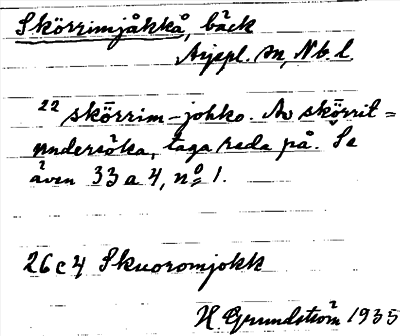 Skörrimjåkkå, bäck
Arjepl. sn, Nb. l.
22 skörrim-johko. Av skörrit =
undersöka, taga reda på. Se
även 33 a 4, nº 1.
26 c 4 Skuoromjokk
H. Grundström 1935